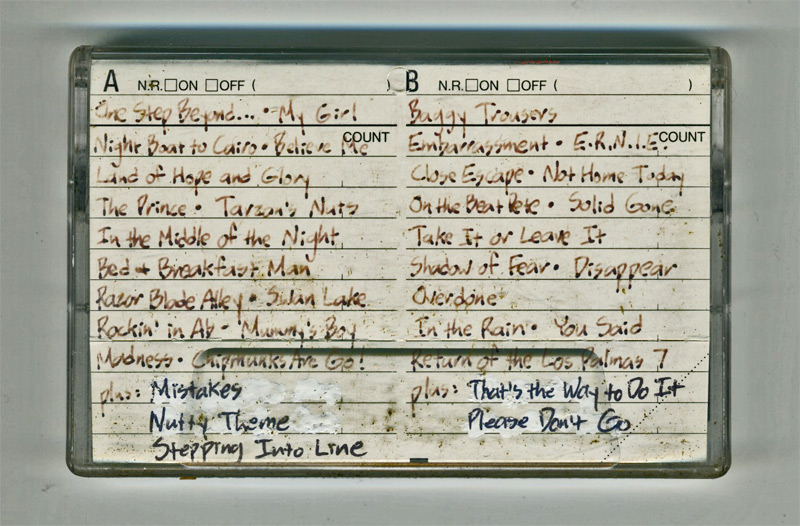 A N.R.□ON □OFF ( )
One Step Beyond... • My Girl
COUNT
Night Boat to Cairo • Believe Me
Land of Hope and Glory
The Prince • Tarzan's Nuts
In the Middle of the Night
Bed & Breakfast Man
Razor Blade Alley • Swan Lake
Rockin' in Ab • Mummy's Boy
Madness • Chipmunks Are Go!
plus: Mistakes
Nutty Theme
Stepping Into Line
B N.R.□ON □OFF ( )
Baggy Trousers
COUNT
Embarrassment • E.R.N.I.E.
Close Escape • Not Home Today
On the Beat Pete • Solid Gone
Take It or Leave It
Shadow of Fear • Disappear
Overdone
In the Rain • You Said
Return of the Los Palmas 7
plus: That's the Way to Do It
Please Don't Go